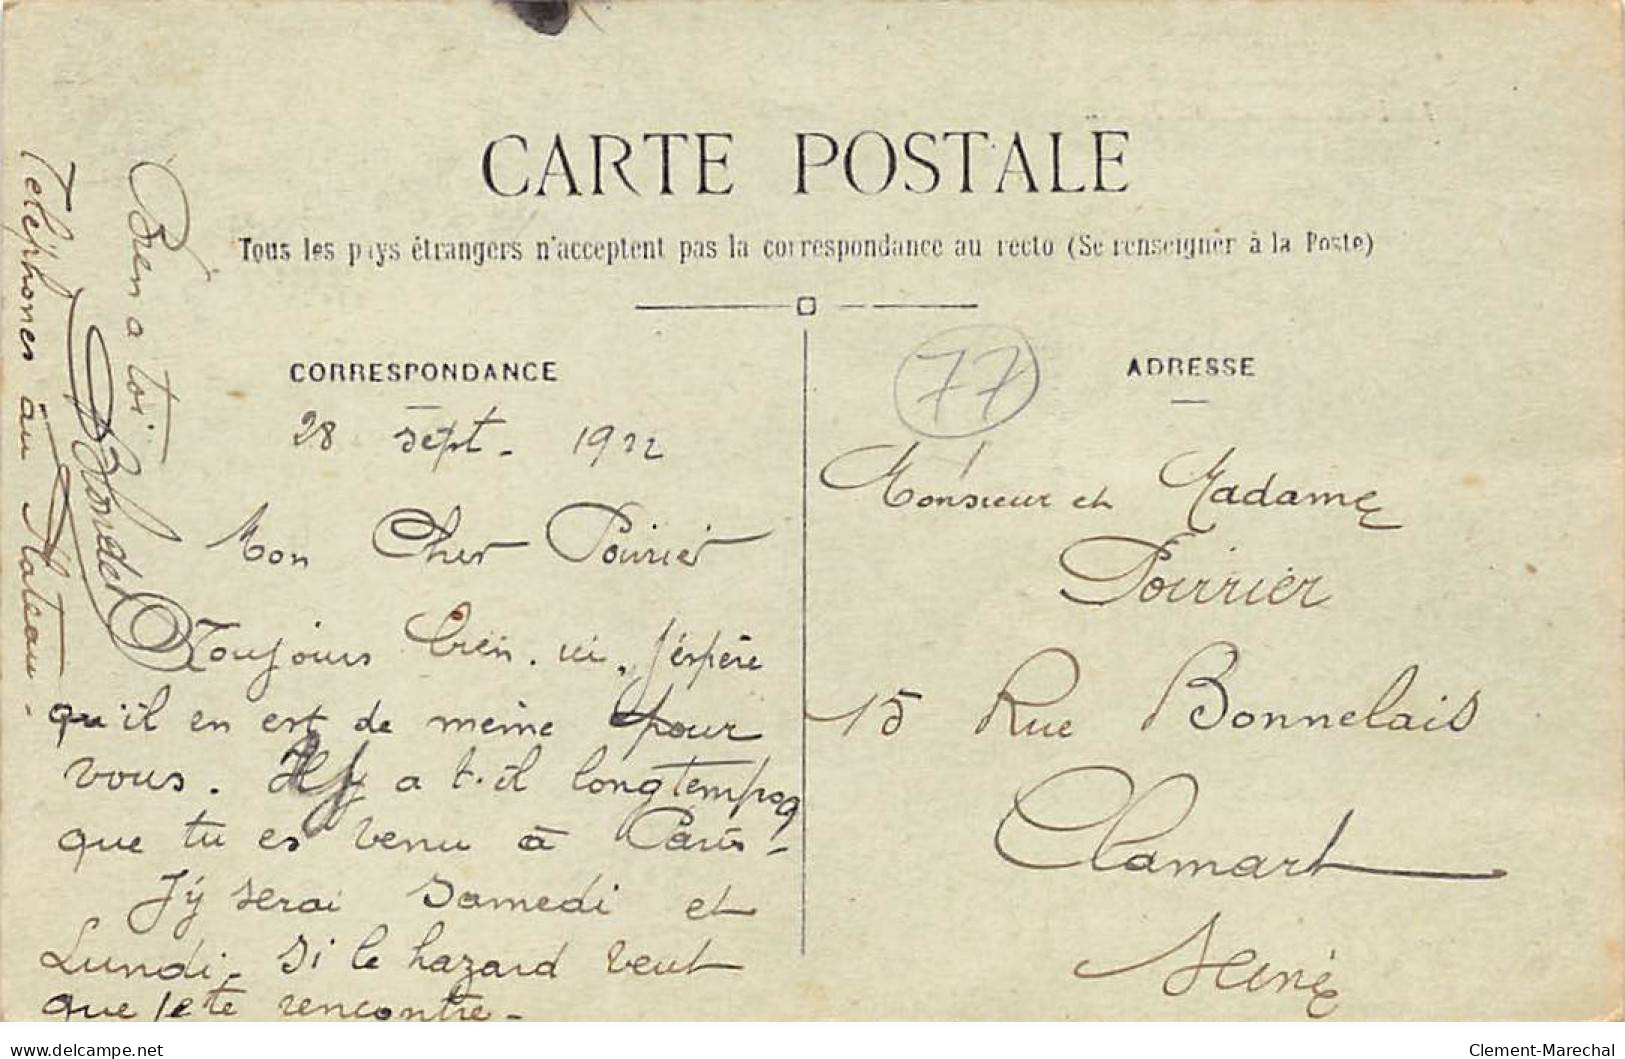 CARTE POSTALE
Tous les pays étrangers n'acceptent pas la correspondance au recto (Se renseigner à la Poste)
CORRESPONDANCE
28 sept. 1922
Mon Cher Poirier
Toujours bien ici, j'éspère
qu'il en est de même pour
vous. Il y a t-il longtemps
que tu es venu à Paris -
J'y serai Samedi et
Lundi, si le hazard veut
que je te rencontre -
Téléphones au Plateau -
Bien a toi
77
ADRESSE
Monsieur et Madame
Poirrier
15 Rue Bonnelais
Clamart
Seine
delcampe.net
Clement-Marechal